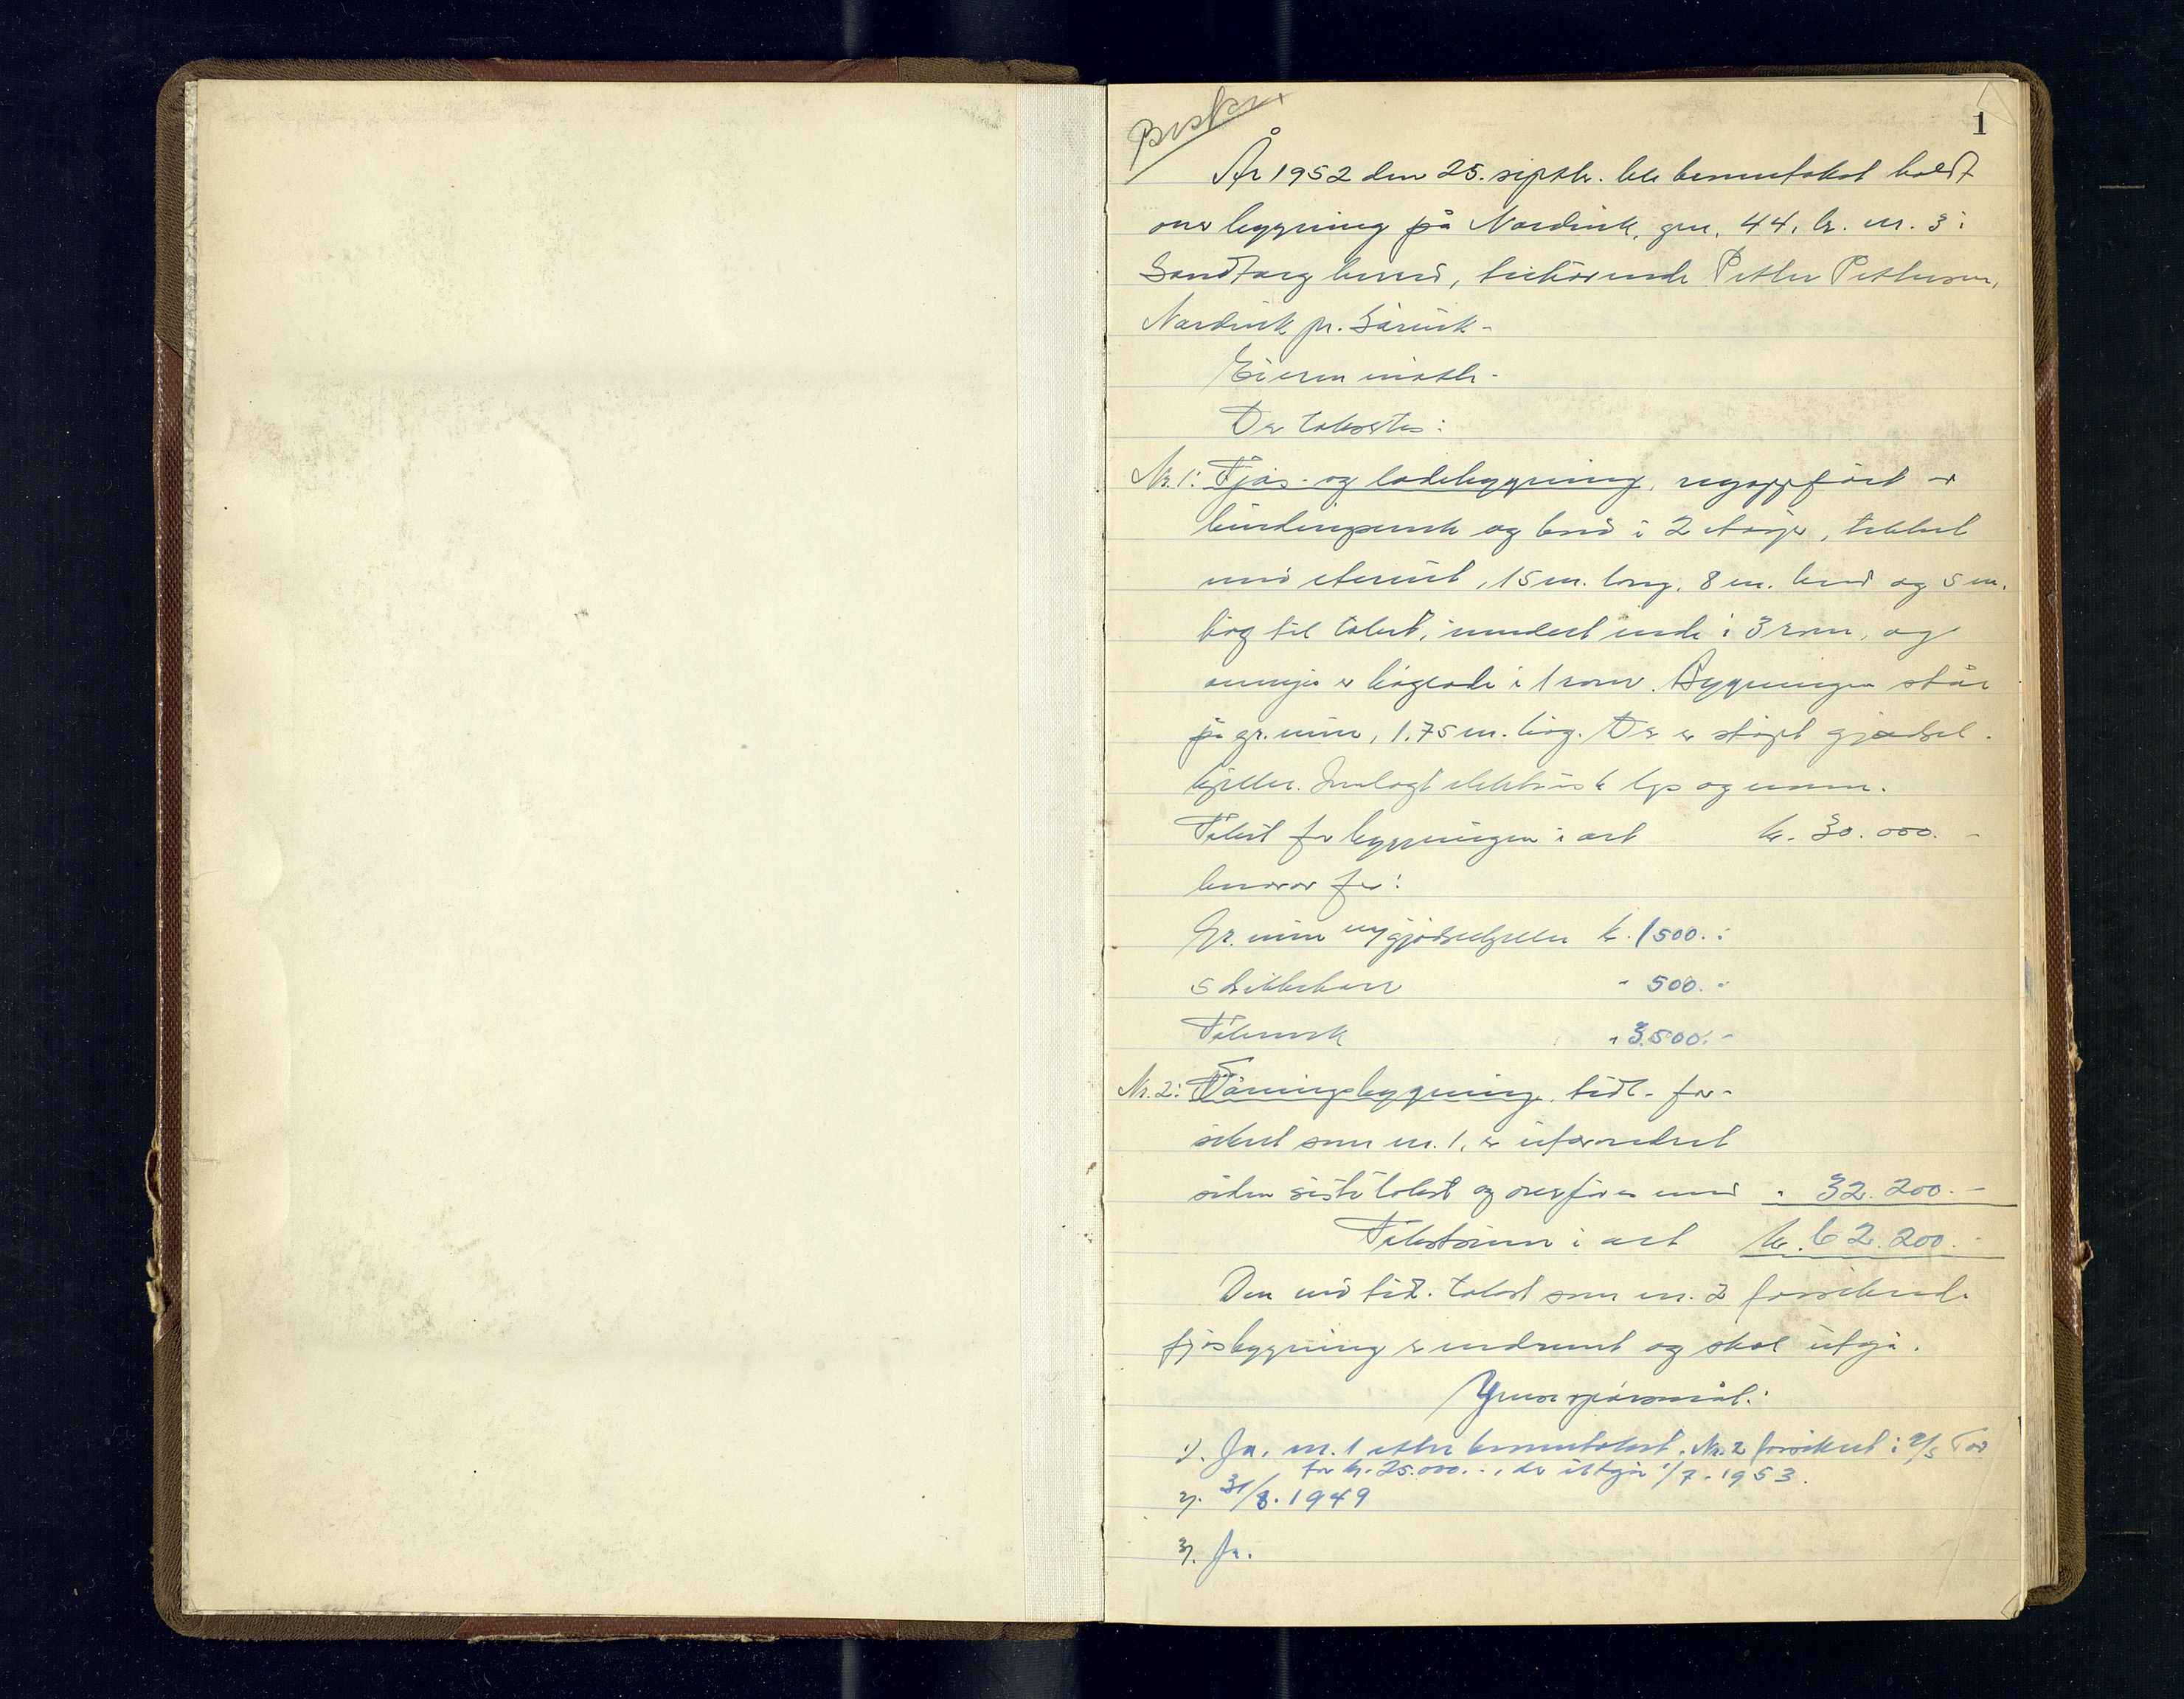 1
År 1952 den 25. septbr. ble branntakst holdt
over bygning på Nordvik, gnr. 44, br. nr. 3 i
Sandtorg herred, tilhørende Petter Pettersen,
Nordvik pr. Sørvik-
Eieren møtte-
De takstes:
Nr. 1: Fjøs- og ladebygning, nyoppført av
bindingsverk og bord i 2 etasjer, tekket
med eternit, 15 m. lang, 8 m. bred og 5 m.
høg til takest, innredet nede i 3 rom, og
oventil er høglade i 1 rom. Bygningen står
på gr. mur, 1.75 m. høg. De er støpt gjødsel-
kjeller. Innlagt elektrisk lys og vann.
Takst for bygningen i alt kr. 30.000.-
hvorav for:
Gr. mur og gjødselkjeller kr. 1500.-
Drikkekar " 500.-
Takverk " 3.500.-
Nr. 2: Våningsbygning, tidl. for-
sikret som nr. 1, er uforandret
siden siste takst og overføres med " 32.200.-
Takstsum i alt kr. 62.200.-
Den ved tid. takst som nr. 2 forsikrede
fjøsbygning er nedrevet og skal utgå.
1). Ja, nr. 1 etter branntakst. Nr. 2 forsikret i
for kr. 25.000.-, de utgår 1/7.1953.
2). 31/8.1949
3). Ja.